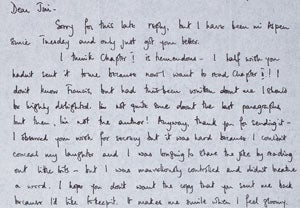 Dear Jai -
Sorry for this late reply, but I have been in Aspen
since Tuesday and only just got your letter.
I think Chapter I is tremendous - I half wish you
hadn't sent it to me because now I want to read Chapter II! I
don't know Francis, but had this been written about me I should
be highly delighted. I'm not quite sure about the last paragraphs
but then, I'm not the author! Anyway, thank you for sending it -
I observed your wish for secrecy but it was hard because I couldn't
conceal my laughter and I was longing to share the joke by reading
out little bits - but I was marvellously controlled and didn't breathe
a word. I hope you don't want the copy that you sent me back
because I'd like to keep it. It makes me smile when I feel gloomy.